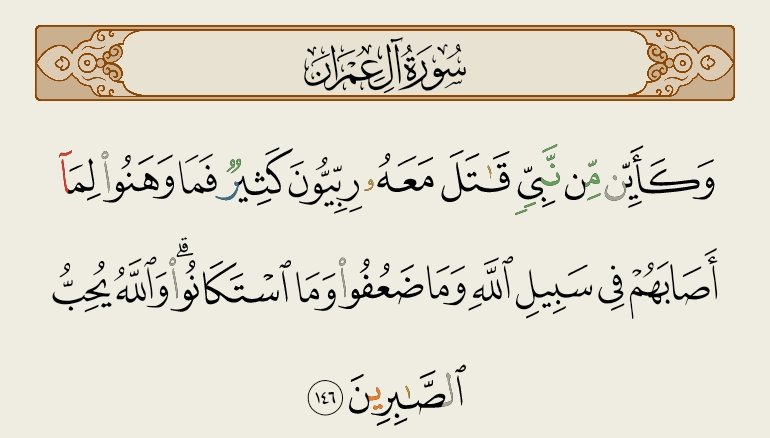 سُورَةُ آلِ عِمْرَانَ
وَكَأَيِّن مِّن نَّبِىٍّۢ قَـٰتَلَ مَعَهُۥ رِبِّيُّونَ كَثِيرٌۭ فَمَا وَهَنُوا۟ لِمَآ
أَصَابَهُمْ فِى سَبِيلِ ٱللَّهِ وَمَا ضَعُفُوا۟ وَمَا ٱسْتَكَانُوا۟ ۗ وَٱللَّهُ يُحِبُّ
ٱلصَّـٰبِرِينَ ١٤٦